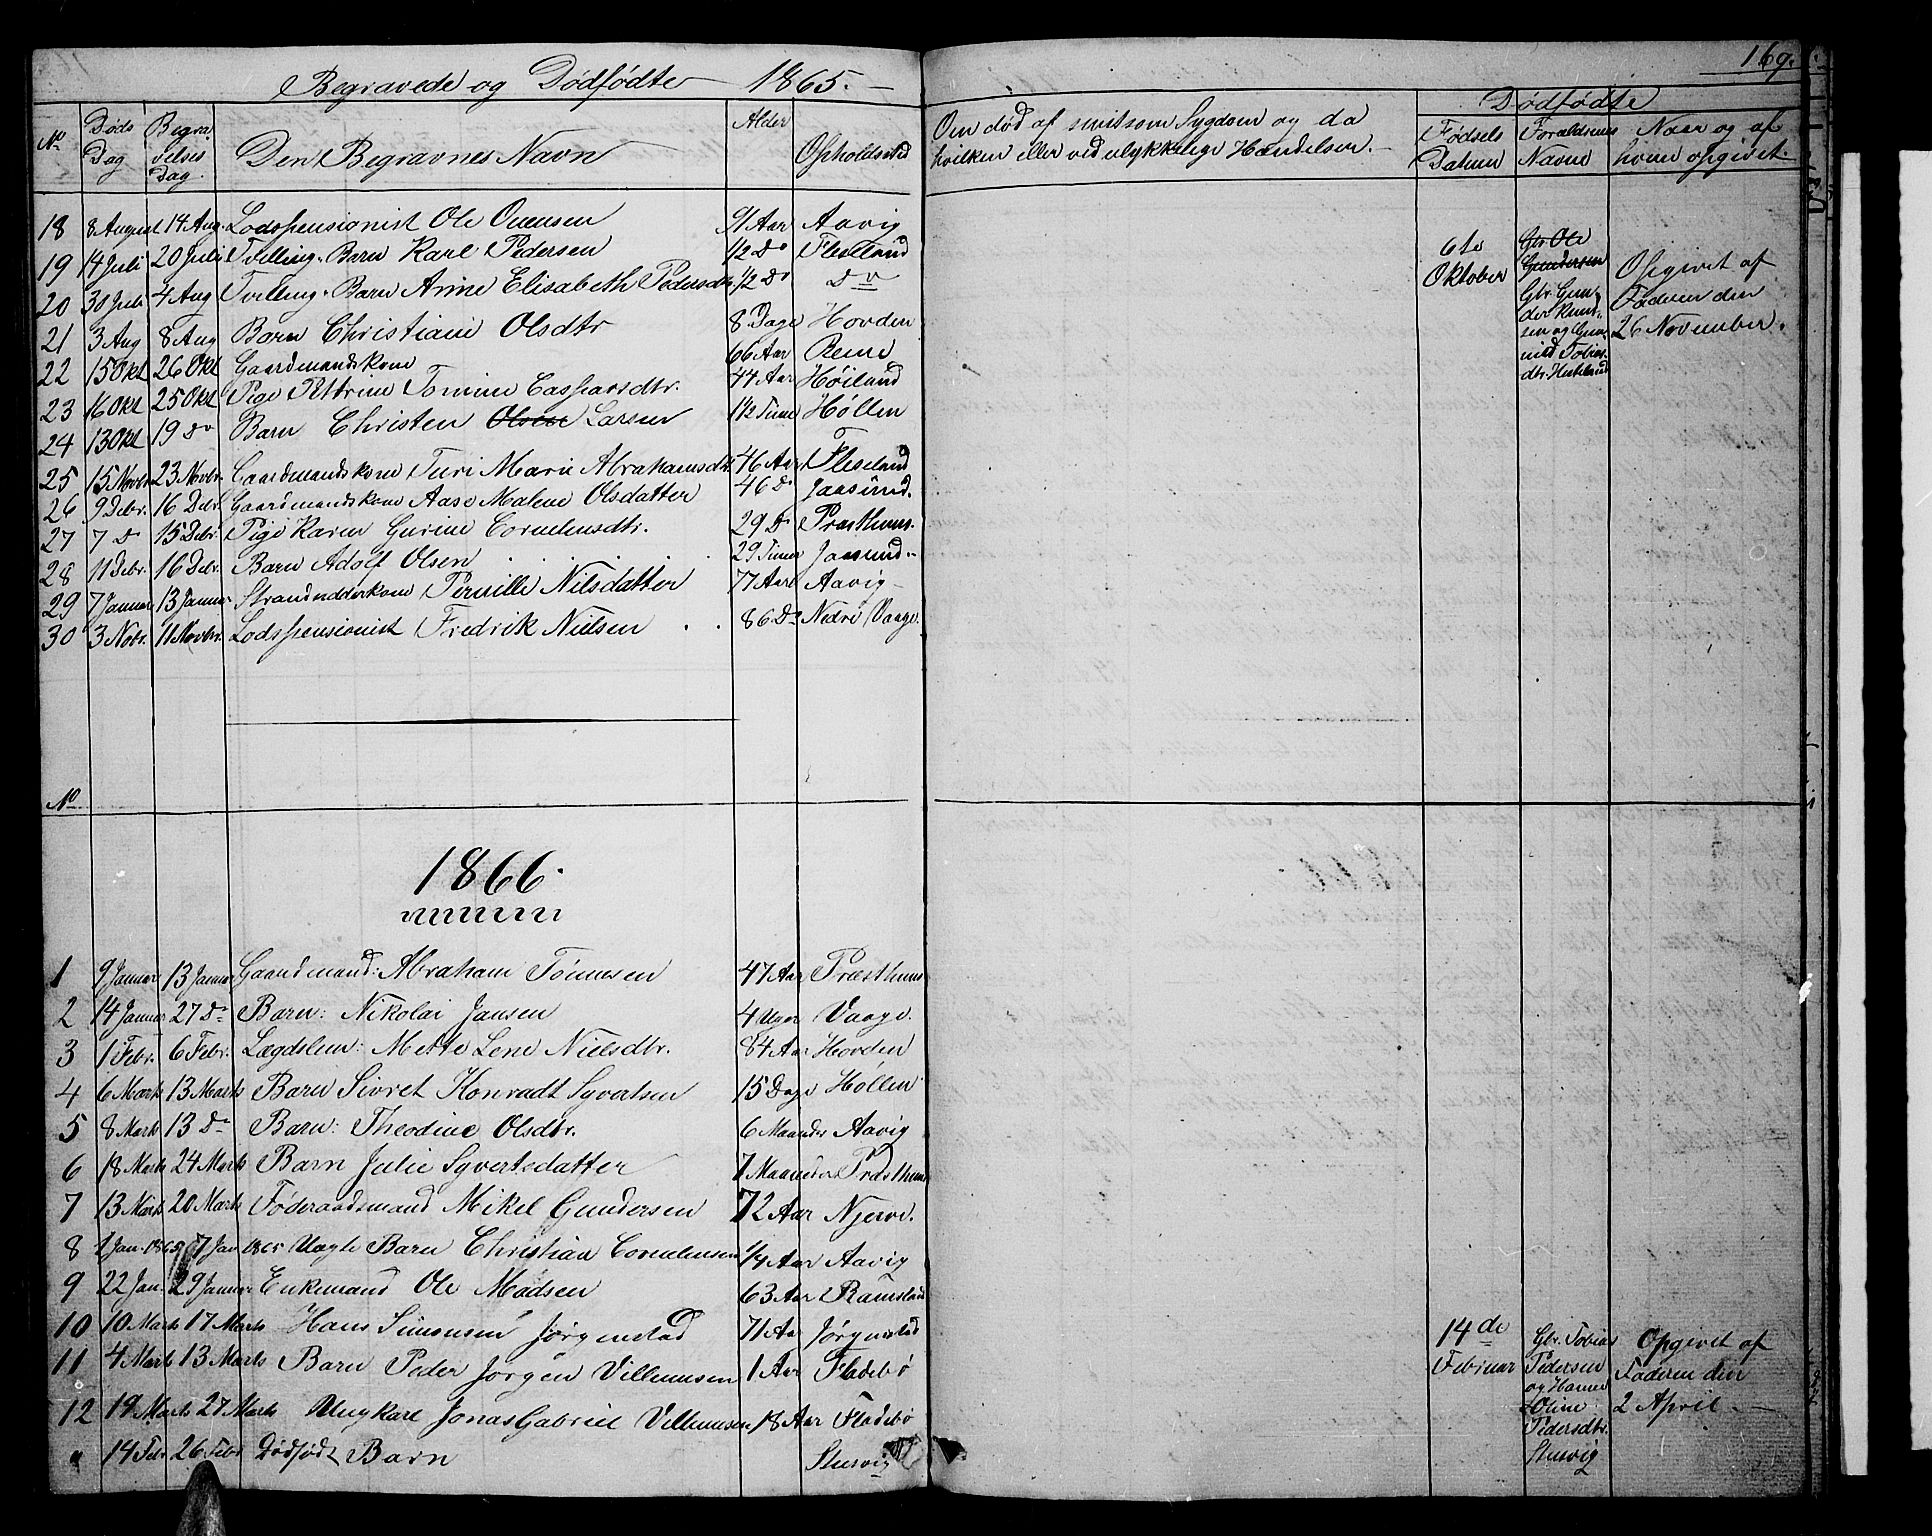 169.
Begravede og Dødfødte 1865.
No Døds Dag Begravelses Dag. Den Begravnes Navn Alder Opholdssted
Om død af smitsom Sygdom og da hvilken eller ved ulykkelige Hændelser.
Dødfødte
Fødsels Datum Forældrenes Navne Naar og af hvem opgivet.
18 8 August 14 Aug. Lodspensionist Ole 91 Aar Aavig
19 14 Juli 20 Juli Tvilling-Barn Karl Pedersen 1/2 Do Fleseland
20 30 Juli 4 Aug Tvilling-Barn Anne Elisabeth Pedersdtr 1/2 Do Do
21 3 Aug 8 Aug Barn Christiane Olsdtr 8 Dage Hovden
22 15 Okt 26 Okt Gaardmandskone 66 Aar Reme
23 16 Okt 25 Okt Pige Pettrine Tomine Casparsdtr. 44 Aar Høiland
24 13 Okt 19 Do Barn Christen Olsen Larsen 1 1/2 Time Høllen
25 15 Novbr. 23 Novbr. Gaardmandskone Turi Marie Abrahamsdtr 46 Aar Fleseland
26 9 Debr. 16 Debr. Gaardmandskone Aase Malene Olsdatter 46 Do Jaasund.
27 7 Do 15 Debr. Pige Karen Gurine Corneliusdtr. 29 Do Præsthuus.
28 11 Debr. 16 Debr. Barn Adolf Olsen 29 Timer Jaasund
29 7 Januar 13 Januar Strandsidderkone Pernille Nilsdatter 77 Aar Aavig
30 3 Nobr. 11 Novbr. Lodspensionist Fredrik Nielsen 86 Do Nedre Vaage.
6te Oktober
Gbr Ole
Gundersen
Gbr. Gun-
der Knut-
sen og Gun-
nild Tobias
dtr.
Opgivet af
Faderen den
26 November.
No
1866.
1 9 Januar 13 Januar Gaardmand: Abraham Tønnesen 47 Aar Præsthuus
2 14 Januar 27 Do Barn: Nikolai Jansen 4 Uger Vaage.
3 1 Febr. 6 Febr. Lægdslem: Mette Lene Nielsdtr. 84 Aar Hovden
4 6 Marts 13 Marts Barn Sivret Konradt Syvertsen 15 Dage Høllen
5 8 Marts 13 Do Barn: Theodine Olsdtr. 6 Maaneder Aavig
6 18 Marts 24 Marts Barn Julie Syvertsdatter 7 Maaneder Præsthuus
7 13 Marts 20 Marts Føderaadsmand Mikel Gundersen 72 Aar Njerve.
8 2 Jan. 1865 7 Jan 1865 Uægte Barn Christian Corneliusen 1/4 Aar Aavig
9 22 Jan. 29 Januar Enkemand Ole Madsen 63 Aar Ramsland
10 10 Marts 17 Marts Hans Simonsen Jørgenstad 71 Aar Jørgenstad
11 4 Marts 13 Marts Barn Peder Jørgen Villumsen 1 Aar Fladebø
12 19 Marts 27 Marts Ungkarl Jonas Gabriel Villumsen 18 Aar Fladebø
" 14 Febr 26 Febr Dødfødt Barn Stusvig
14de Februar
Gbr. Tobias
Pedersen
og Hanne
Oline
Pedersdtr.
Stusvig
Opgivet af
Faderen den
2 April